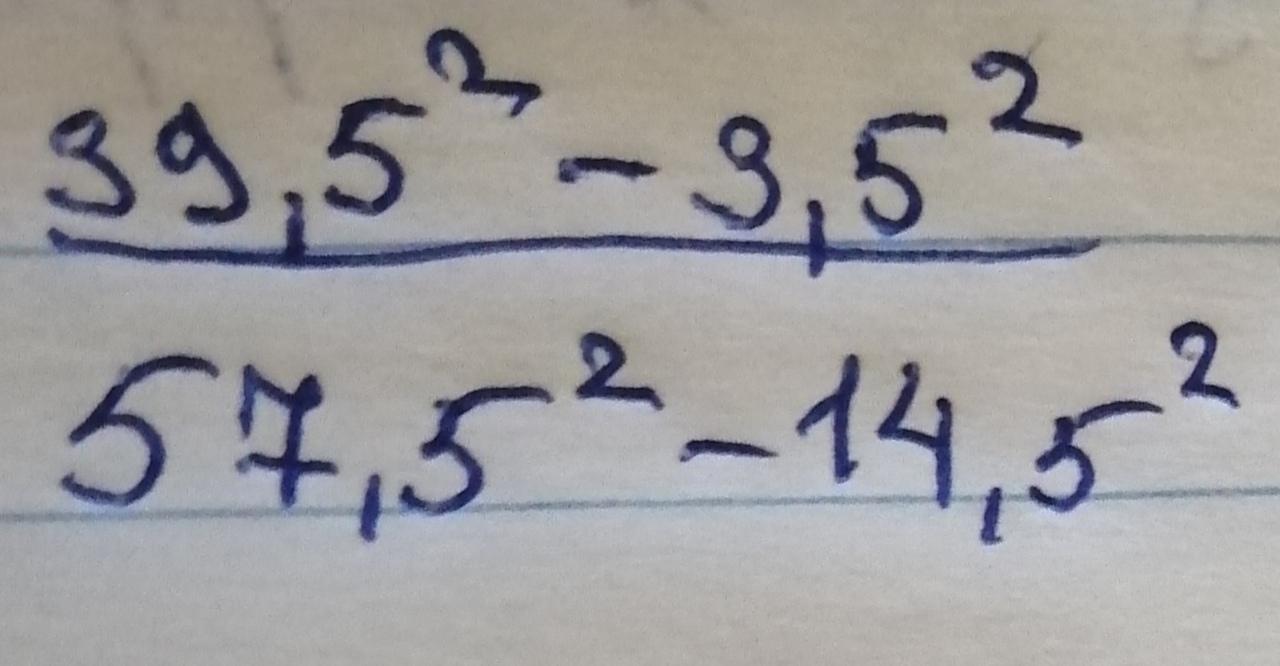 39,5² - 3,5²
57,5² - 14,5²